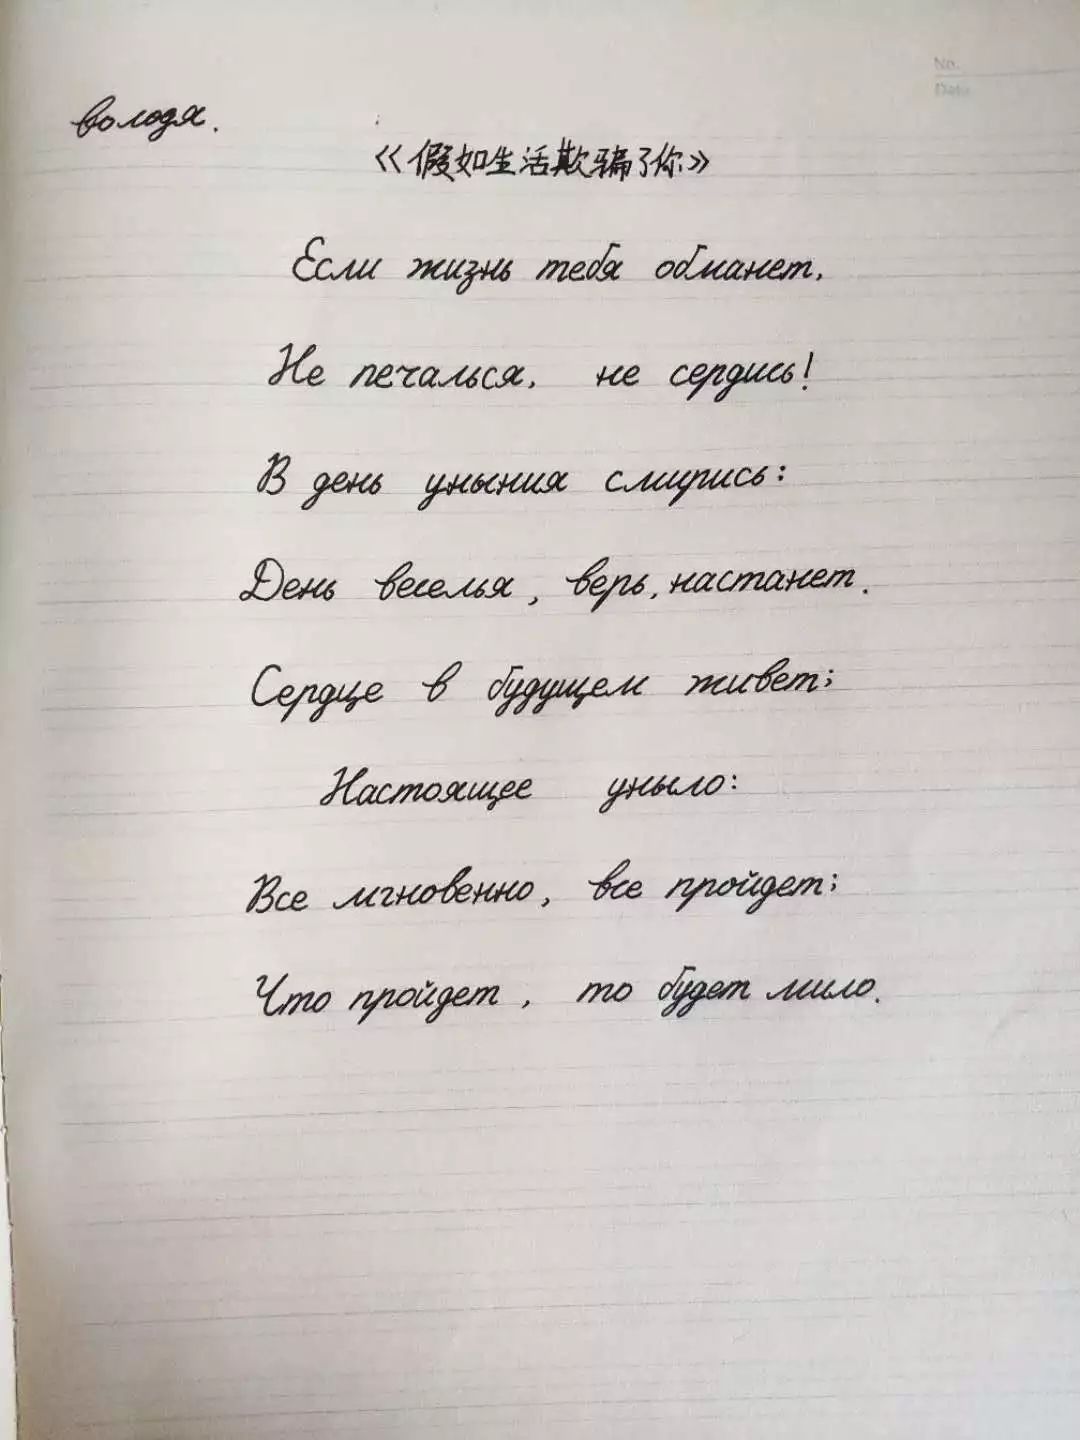 No.
Date
володя.
《假如生活欺骗了你》
Если жизнь тебя обманет,
Не печалься, не сердись!
В день уныния смирись:
День веселья, верь, настанет.
Сердце в будущем живет;
Настоящее уныло:
Все мгновенно, все пройдет;
Что пройдет, то будет мило.